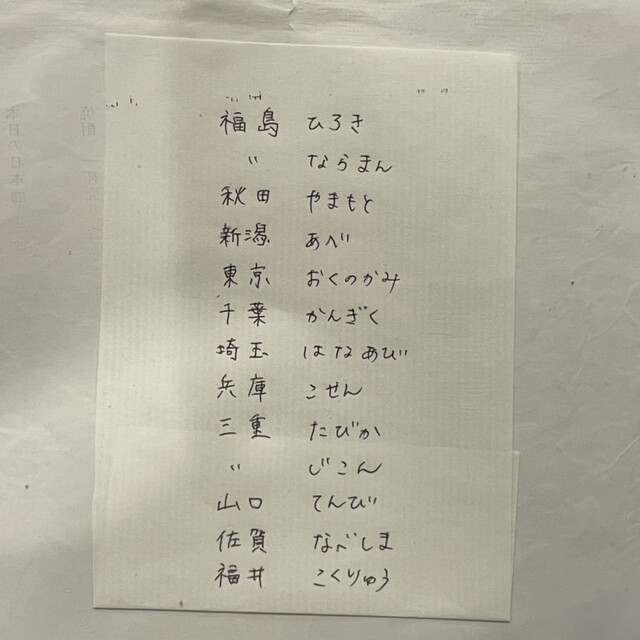 福島 ひろき
〃 ならまん
秋田 やまもと
新潟 あべ
東京 おくのかみ
千葉 かんぎく
埼玉 はなあび
兵庫 こせん
三重 たびか
〃 じこん
山口 てんび
佐賀 なべしま
福井 こくりゅう